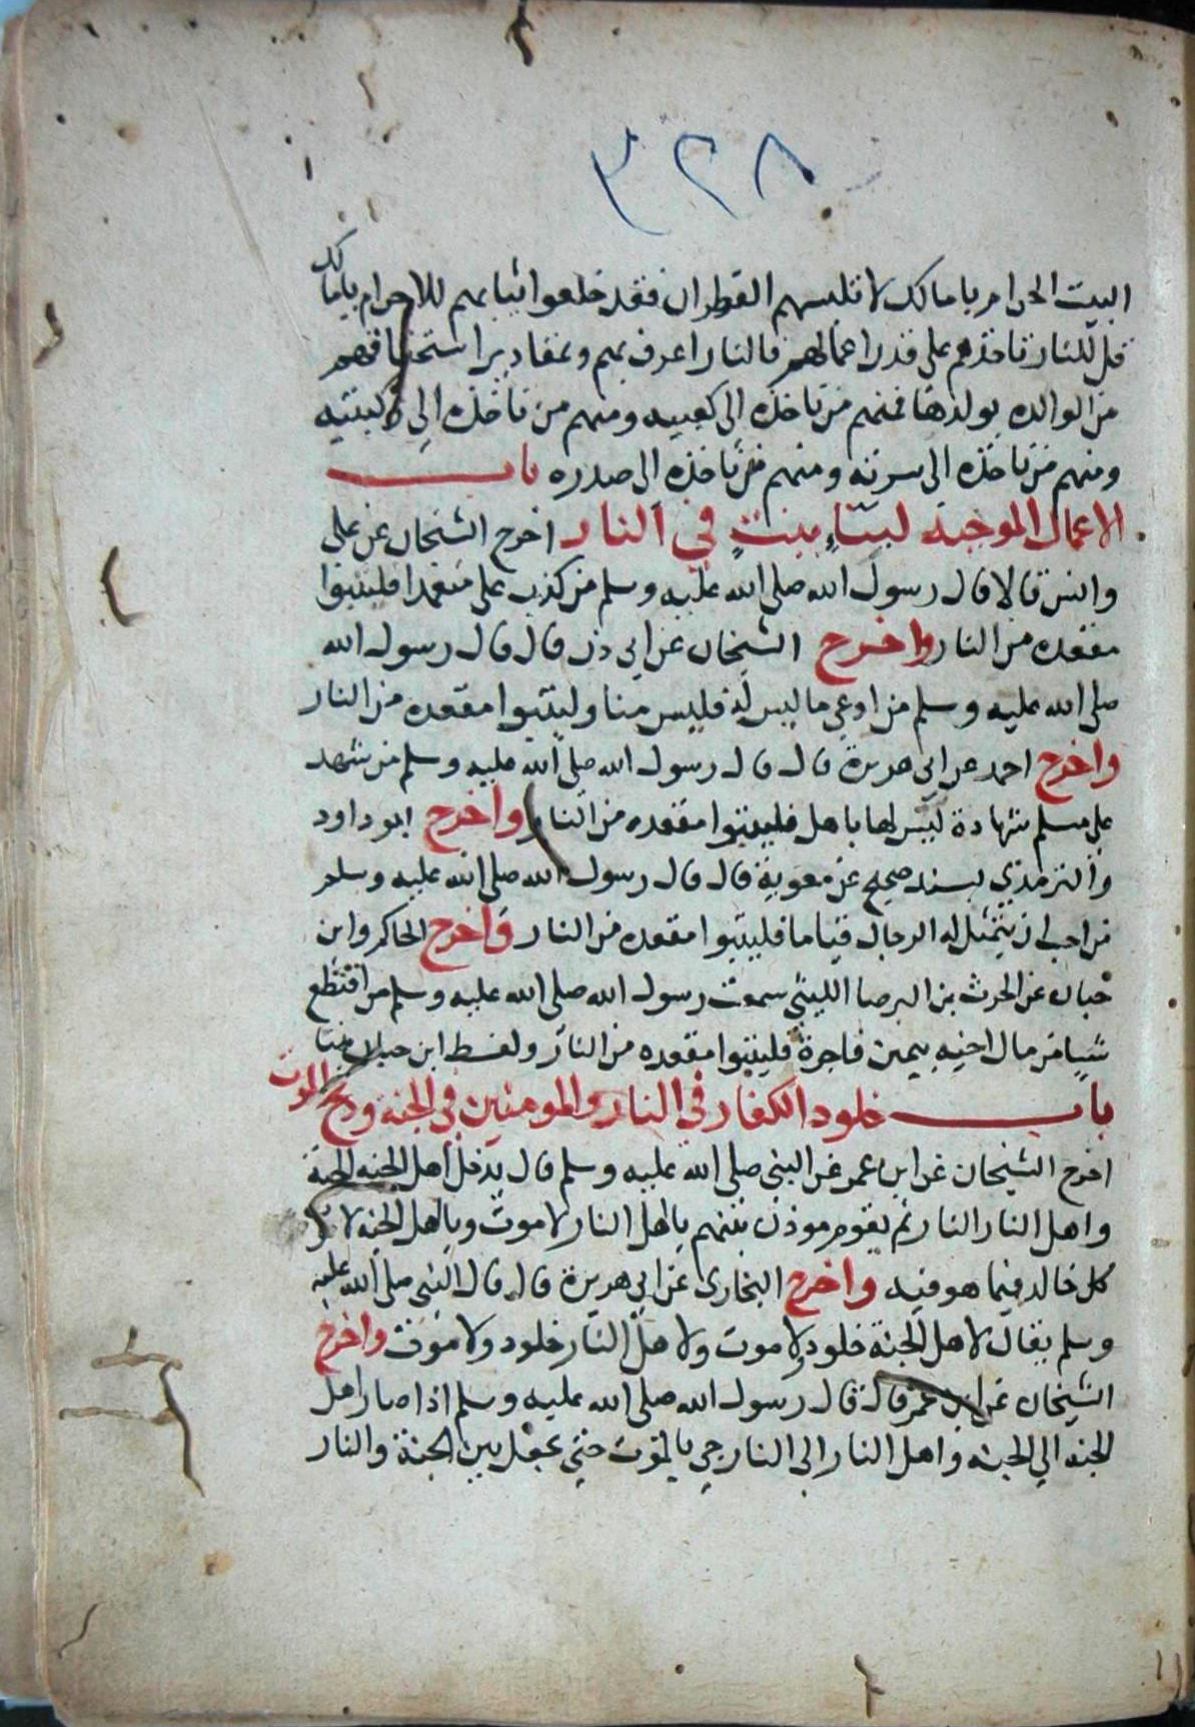 ٣٢٨
البيت الحرام يا مالك لا تلبسهم القطران فقد خلعوا ثيابهم للاحرام يا مالك
قل للنار تاخذهم على قدر اعمالهم فالنار اعرف بهم وبمقادير استحقاقهم
من الوالده بولدها فمنهم من تاخذه الى كعبيه ومنهم من تاخذه الى ركبتيه
ومنهم من تاخذه الى سرته ومنهم من تاخذه الى صدره باب
الاعمال الموجبة لبناء بيت في النار اخرج الشيخان عن على
وانس قالا قال رسول الله صلى الله عليه وسلم من كذب على متعمدا فليتبوا
مقعده من النار واخرج الشيخان عن ابي ذر قال قال رسول الله
صلى الله عليه وسلم من ادعى ما ليس له فليس منا وليتبوا مقعده من النار
واخرج احمد عن ابي هريرة قال قال رسول الله صلى الله عليه وسلم من شهد
على مسلم شهادة ليس لها باهل فليتبوا مقعده من النار واخرج ابو داود
والترمذي بسند صحيح عن معوية قال قال رسول الله صلى الله عليه وسلم
من احب ان يتمثل له الرجال قياما فليتبوا مقعده من النار واخرج الحاكم وابن
حبان عن الحرث بن البرصا الليثي سمعت رسول الله صلى الله عليه وسلم من اقتطع
شيا من مال اخيه بيمين فاجرة فليتبوا مقعده من النار ولفظ ابن حبان بيتا
باب خلود الكفار في النار والمومنين في الجنة وذبح الموت
اخرج الشيخان عن ابن عمر عن النبي صلى الله عليه وسلم قال يدخل اهل الجنه الجنة
واهل النار النار ثم يقوم موذن بينهم ياهل النار لا موت وياهل الجنه لا موت
كل خالد فيما هو فيه واخرج البخارى عن ابي هريرة قال قال النبي صلى الله عليه
وسلم يقال لاهل الجنة خلود ولا موت ولاهل النار خلود ولا موت واخرج
الشيخان عن ابن عمر قال قال رسول الله صلى الله عليه وسلم اذا صار اهل
الجنه الي الجنه واهل النار الى النار جي بالموت حتي يجعل بين الجنة والنار